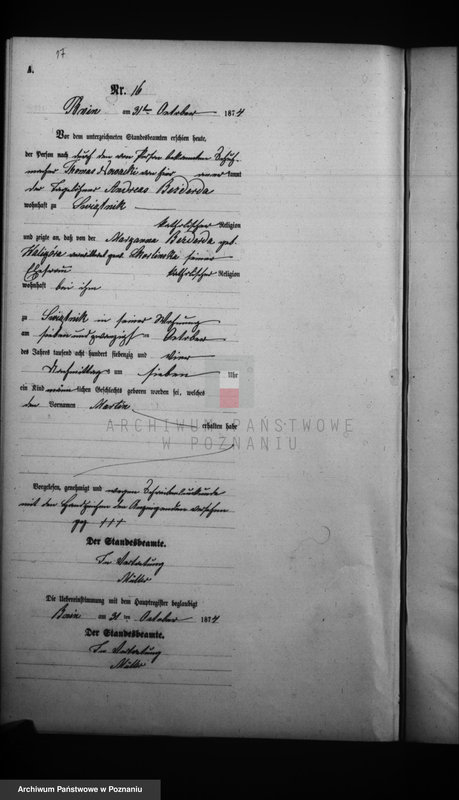 17
A.
Nr. 16
Bnin am 31ten October 1874
Vor dem unterzeichneten Standesbeamten erschien heute,
der Person nach durch den von Person bekannten Schuh-
macher Thomas Nowacki von hier anerkannt
der Tagelöhner Andreas Berdarda
wohnhaft zu Swiątnik
katholischer Religion
und zeigte an, daß von der Maryanna Berdarda geb.
seiner
Ehefrau katholischer Religion
wohnhaft bei ihm
zu Swiątnik in seiner Wohnung
am sieben und zwanzigst en October
des Jahres tausend acht hundert siebenzig und vier
Nachmittags um sieben Uhr
ein Kind männlichen Geschlechts geboren worden sei, welches
den Vornamen Martin
erhalten habe
ARCHIWUM PAŃSTWOWE
W POZNANIU
Vorgelesen, genehmigt und wegen Schreibensunkunde
mit den Handzeichen des Anzeigenden versehen
gez +++
Der Standesbeamte.
In Vertretung
Müller
Die Uebereinstimmung mit dem Hauptregister beglaubigt
Bnin am 31 ten October 1874
Der Standesbeamte.
In Vertretung
Müller
Archiwum Państwowe w Poznaniu